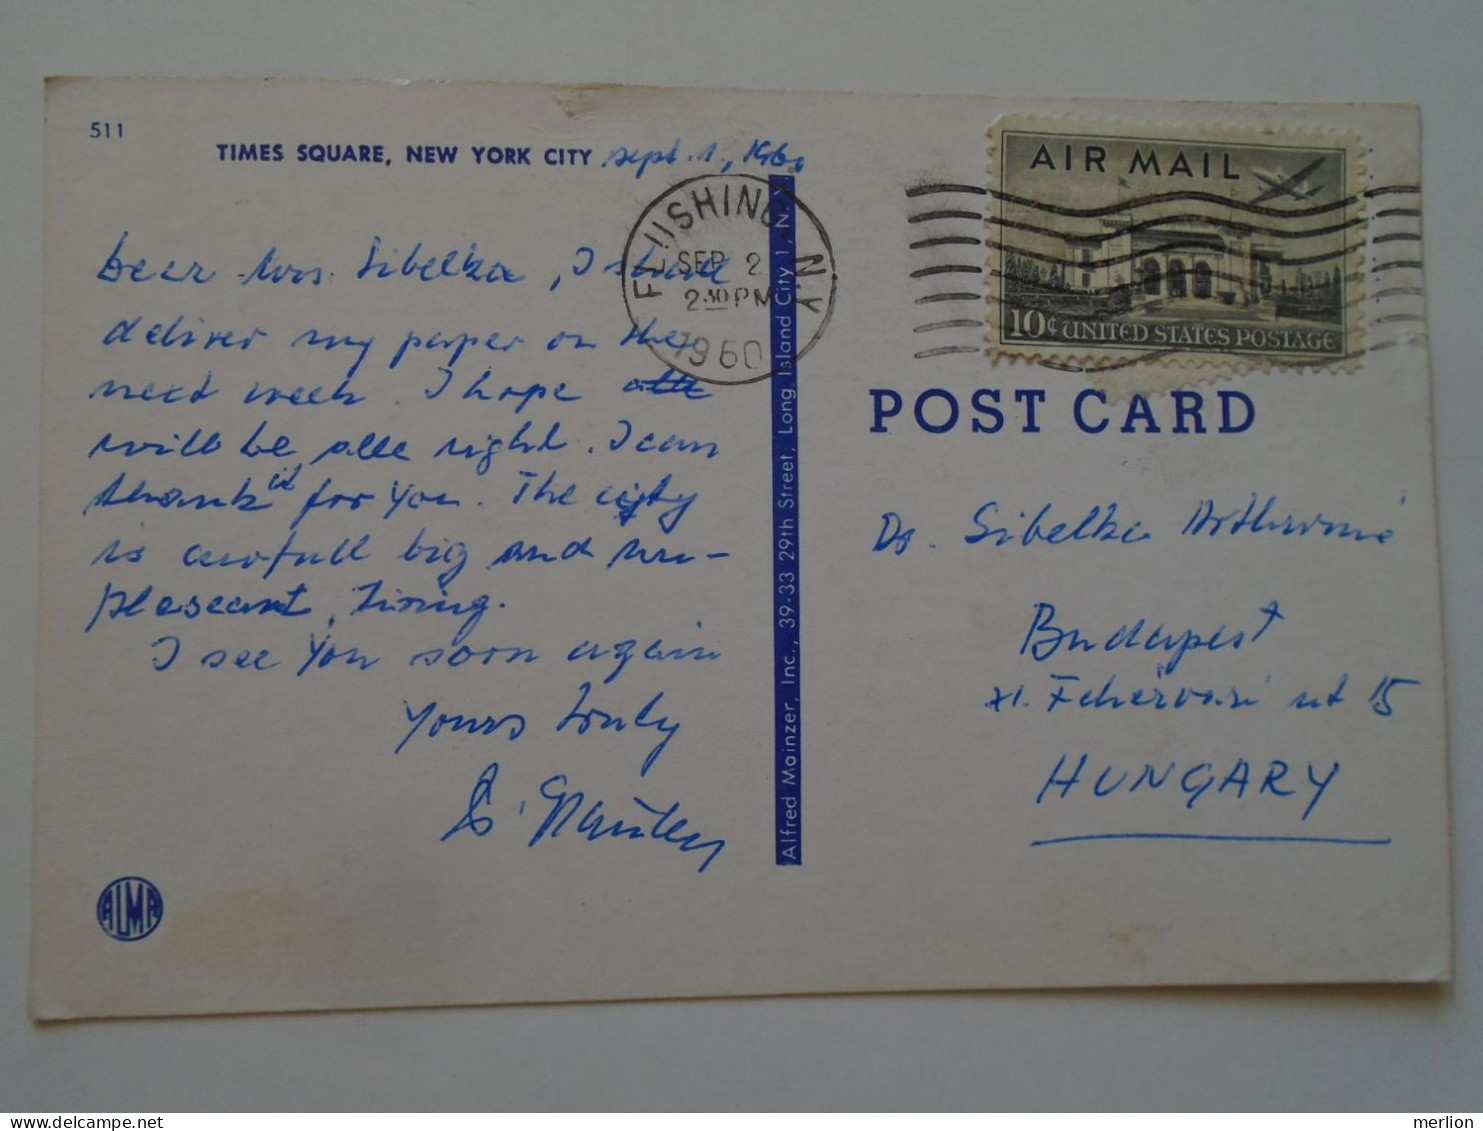 511
TIMES SQUARE, NEW YORK CITY Sept. 1, 1960
Dear Mrs. Sibelka, I shall
deliver my paper on the
next week. I hope
will be alle right. I can
thank it for You. The city
is awfull big and un-
pleseant, tiring.
I see You soon again
Yours truly
FLUSHING, N.Y.
SEP 2
2 30 PM
1960
Alfred Mainzer, Inc., 39-33 29th Street, Long Island City 1, N.Y.
ALMA
AIR MAIL
10¢ UNITED STATES POSTAGE
POST CARD
Dr. Sibelka Arthurné
Budapest
XI. Fehérvári ut 15
HUNGARY
merlion